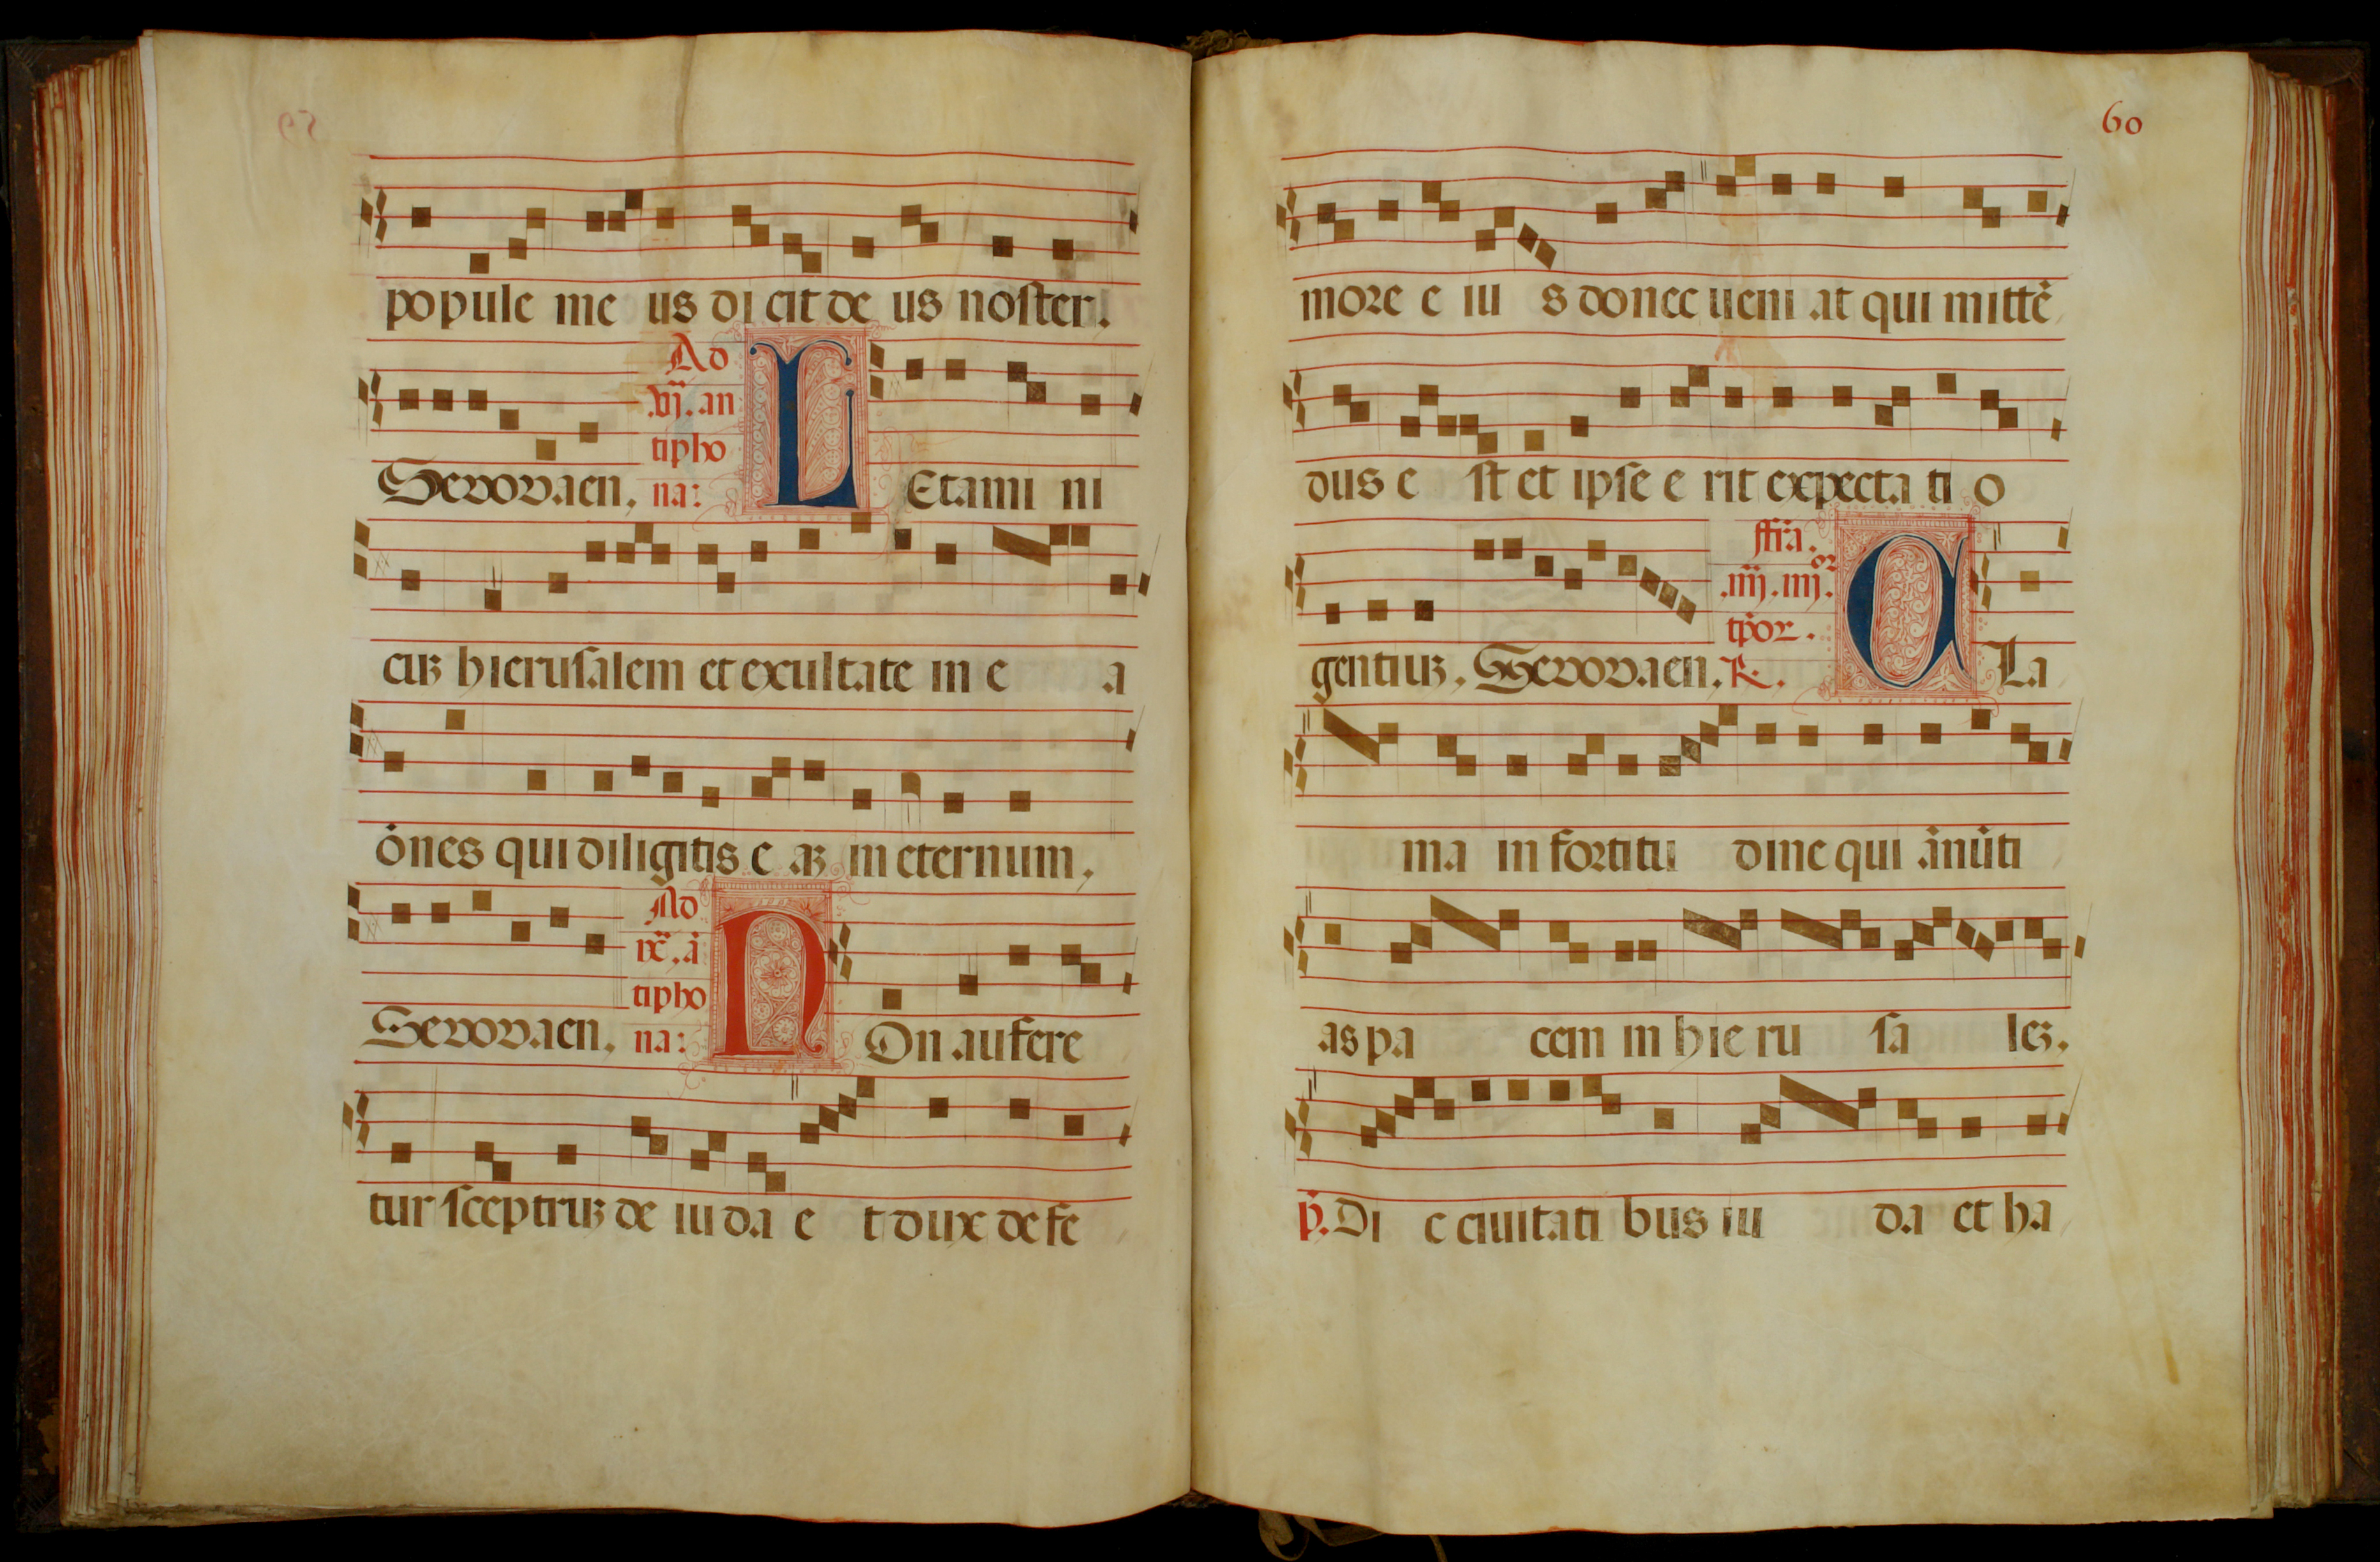 popule me us di cit de us noster.
Ad
.vij. an
tipho
na:
Seuouaen, L Etami ni
cuꝫ hierusalem et exultate in e a
o᷑nes qui diligitis e aꝫ in eternum,
Ad
tipho
na:
Seuouaen, N On aufere
tur sceptruꝫ de iu da e t dux de fe
60
more e iu s donec ueni at qui mitte᷑
dus e st et ipse e rit expecta ti o
gentiuꝫ, Seuouaen, R. A La
ma in fortitu dine qui a᷑nu᷑ti
as pa cem in hie ru sa leꝫ.
Di c ciuitati bus iu da et ha